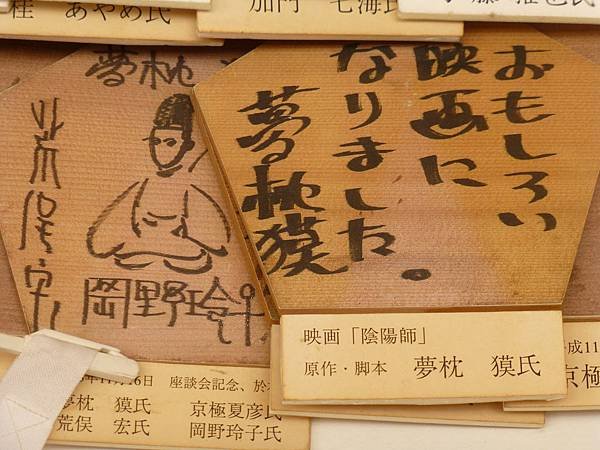 桂 あやめ氏
加門 七海氏
おもしろい
映画に
なりました。
夢枕獏
映画「陰陽師」
原作・脚本 夢枕 獏氏
夢枕
岡野玲子
荒俣宏
月26日 座談会記念、於
夢枕 獏氏 京極夏彦氏
荒俣 宏氏 岡野玲子氏
成11
京極